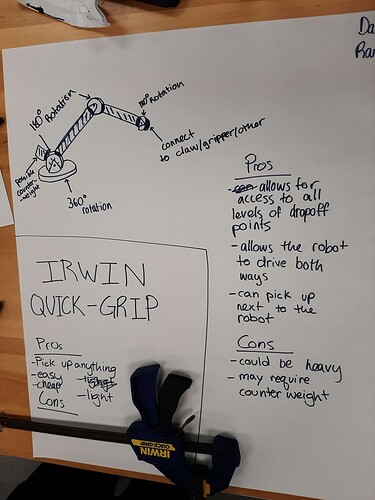 Da
Ran
180° Rotation
180° Rotation
connect
to claw/gripper/other
possible
counter-
weight
360°
rotation
Pros
allows for
access to all
levels of dropoff
points
- allows the robot
to drive both
ways
- can pick up
next to the
robot
Cons
- could be heavy
- may require
counter weight
IRWIN
QUICK-GRIP
Pros
- Pick up anything
- easy
- cheap
- light
Cons
IRWIN
QUICK-GRIP